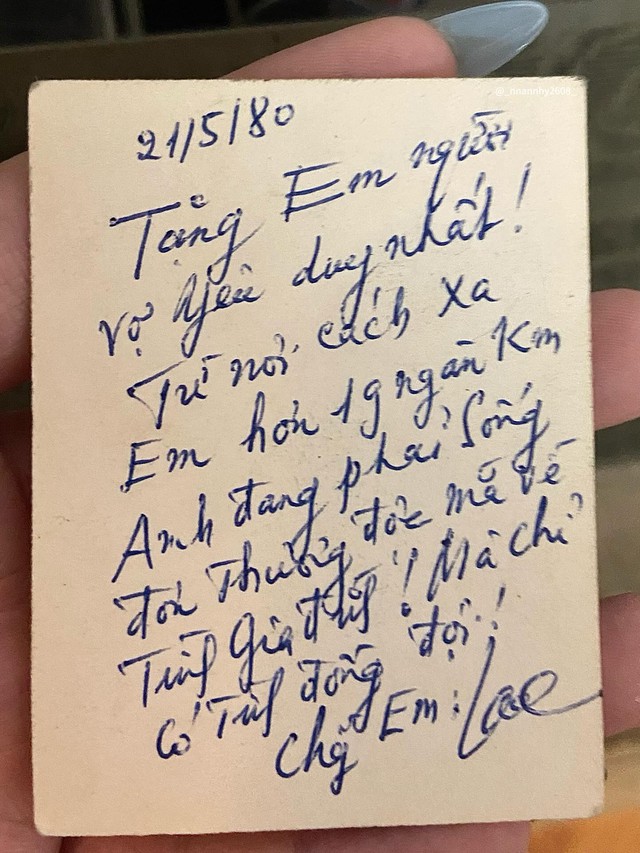 21/5/80
Tặng Em người
vợ yêu duy nhất!
Từ nơi cách xa
Em hơn 19 ngàn Km
Anh đang phải Sống
đơn Thương độc mã về
Tình Gia đình! Mà chỉ
Có Tình đồng đội!
Chồg Em: